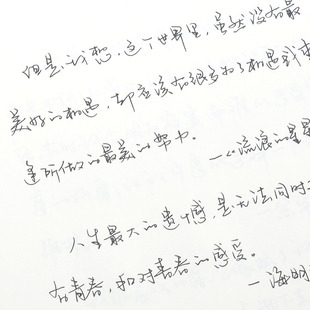 但是，我想，这个世界里，虽然没有最
美好的相遇，却应该有很多为了相遇或
逢所做的最美的努力。
—《流浪的星星
人生最大的遗憾，是无法同时
有青春，和对青春的感受。
—海明